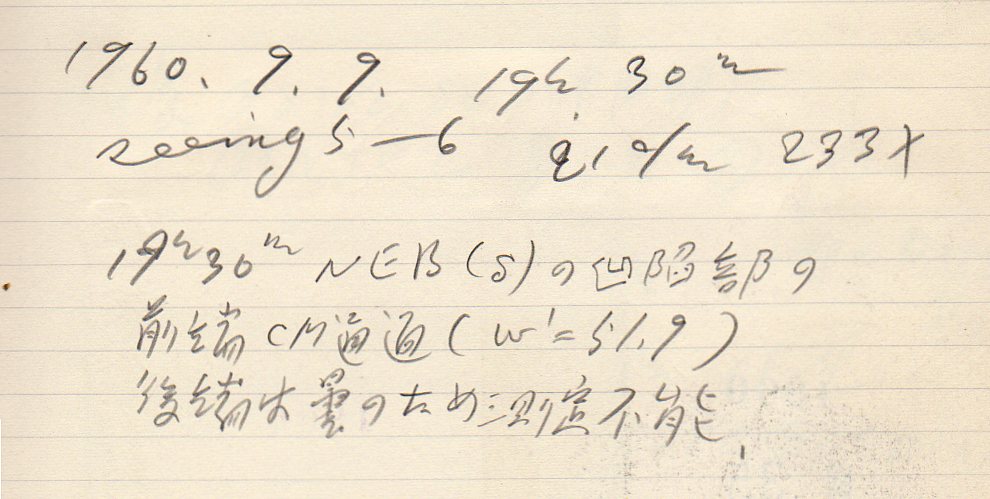 1960. 9. 9. 19h 30m
seeing 5—6 21c/m 233X
19h30m NEB(S)の凹陥部の
前端CM通過(W'=51.9)
後端ハ曇のため測定不能.